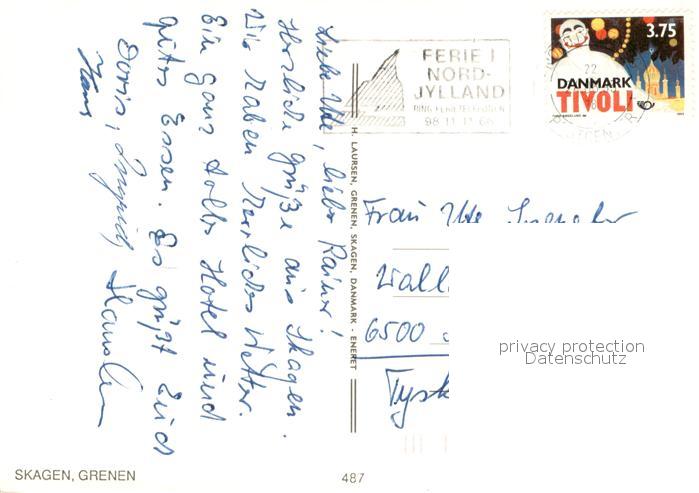 Liebe Ute, lieber Rainer!
Herzliche Grüße aus Skagen.
Wir haben herrliches Wetter.
Ein ganz tolles Hotel und
gutes Essen. Es grüßt Euch
Doris, Ingrid,
Hans
FERIE I
NORD-
JYLLAND
RING FERIETELEFONEN
98 11 11 66
22
3.75
DANMARK
TIVOLI
H. LAURSEN, GRENEN, SKAGEN, DANMARK - ENERET
Frau Ute
Wall
6500
Tysk
privacy protection
Datenschutz
SKAGEN, GRENEN
487